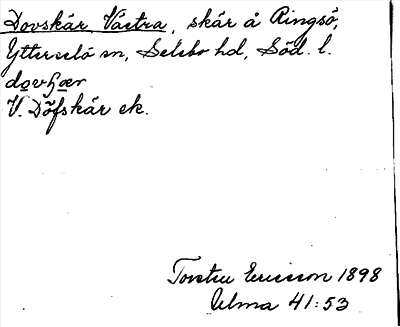 Dovskär Västra, skär å Ringsö,
Ytterselö sn, Selebo hd, Söd. l.
dovʃær
V. Döfskär ek.
Torsten Ericsson 1898
Ulma 41:53